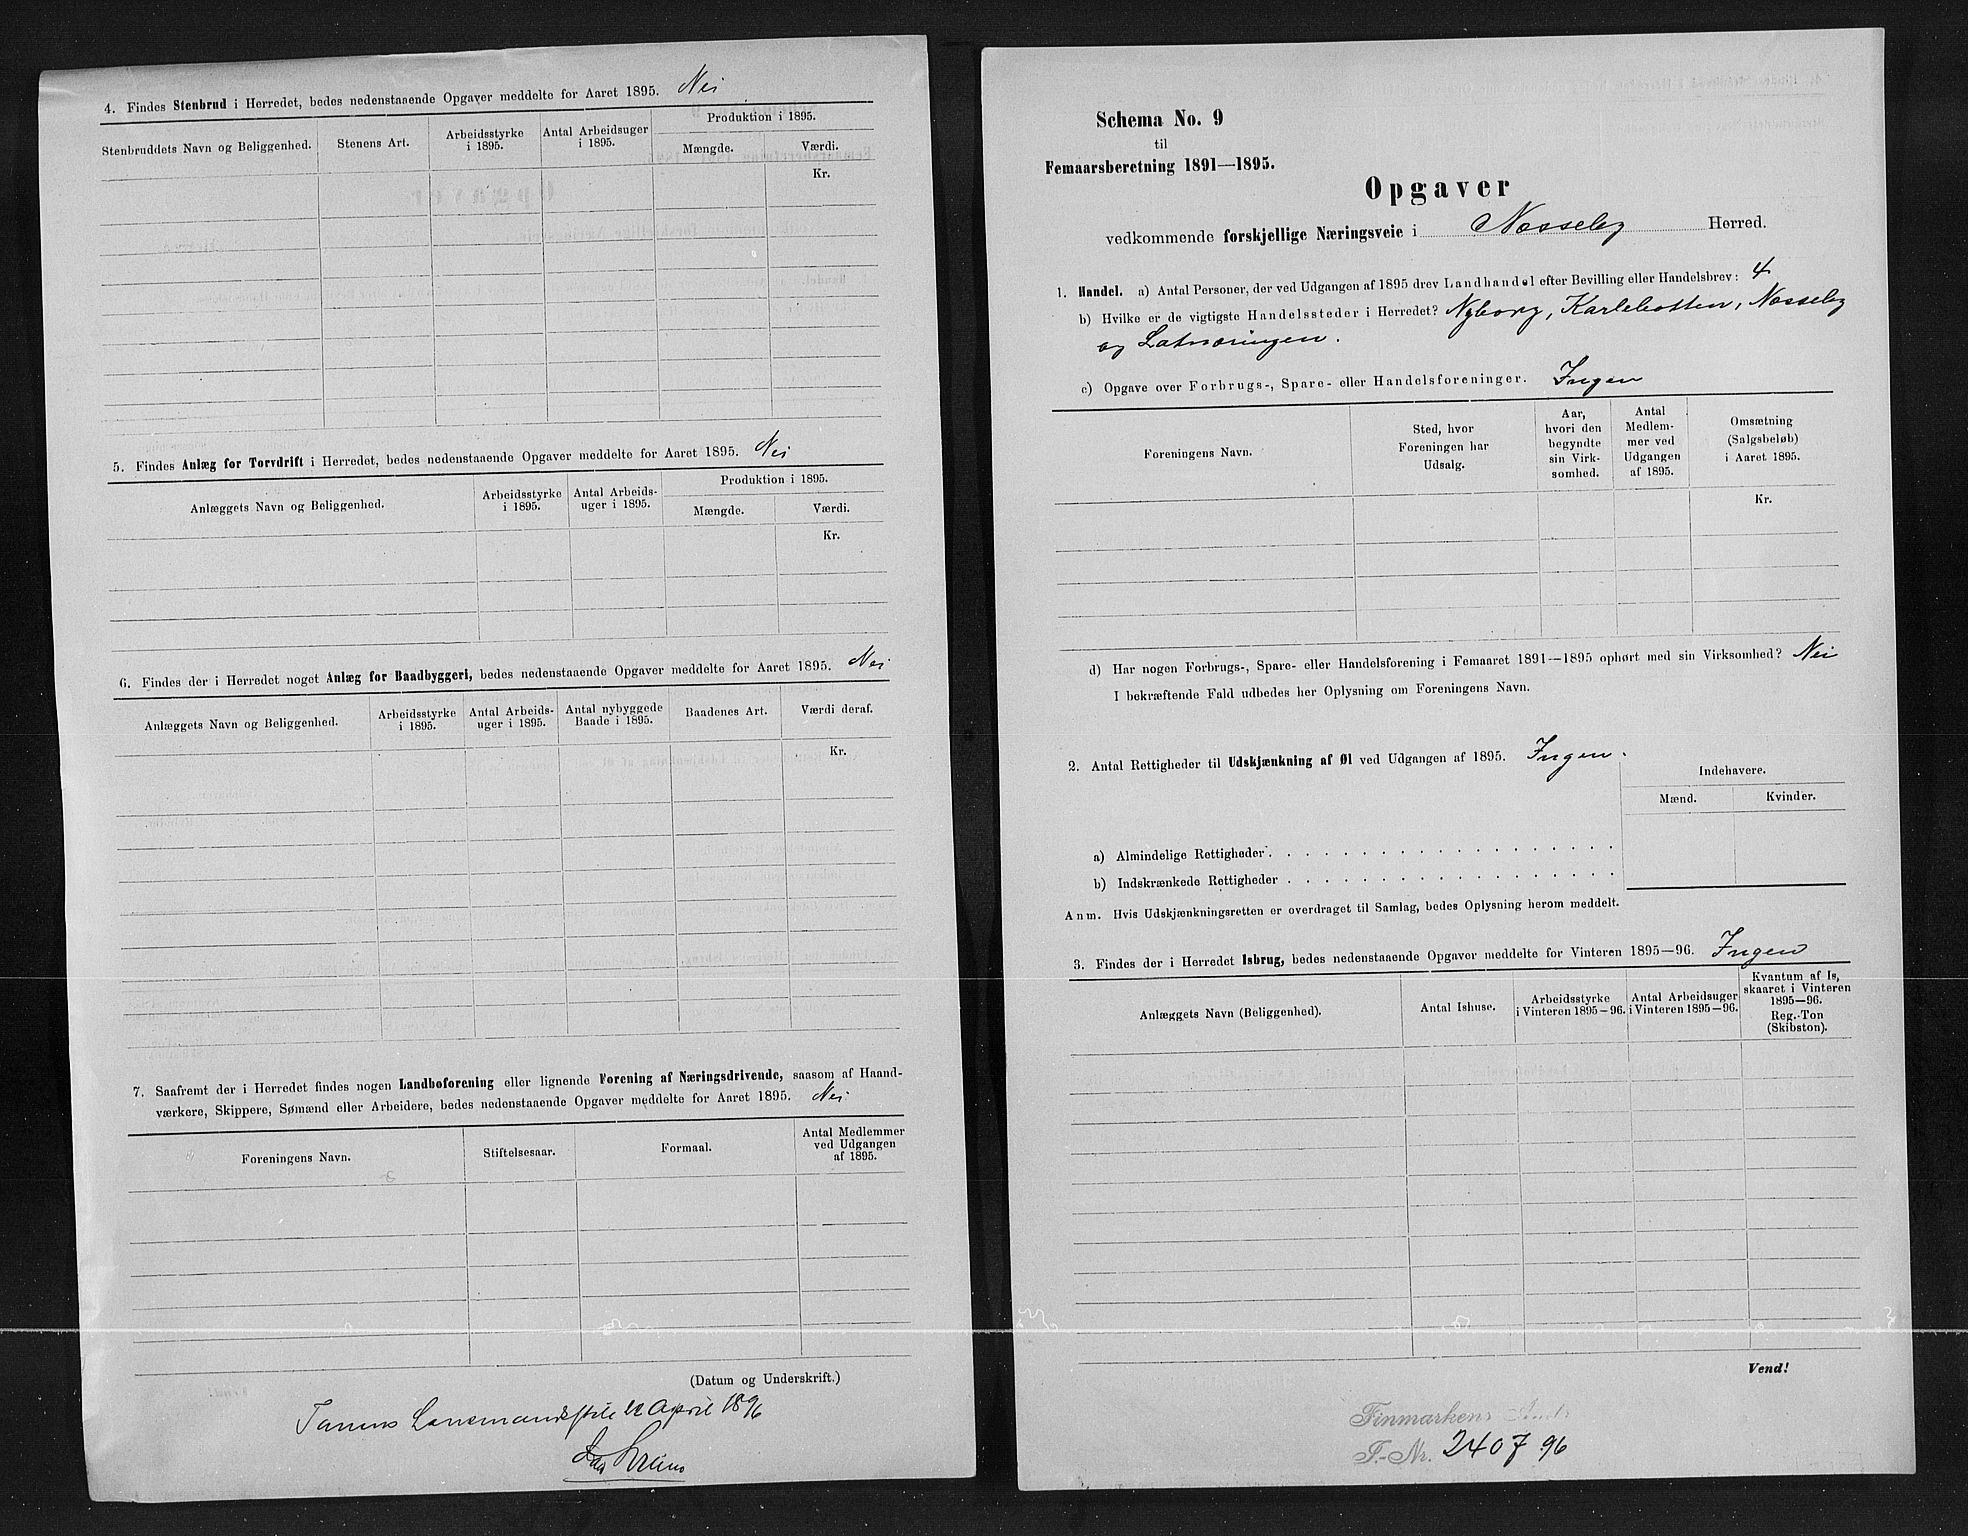 4. Findes Stenbrud i Herredet, bedes nedenstaaende Opgaver meddelte for Aaret 1895. Nei
Stenbruddets Navn og Beliggenhed.
Stenens Art.
Arbeidsstyrke
i 1895.
Antal Arbeidsuger
i 1895.
Produktion i 1895.
Mængde.
Værdi.
Kr.
5. Findes Anlæg for Torvdrift i Herredet, bedes nedenstaaende Opgaver meddelte for Aaret 1895. Nei
Anlæggets Navn og Beliggenhed.
Arbeidsstyrke
i 1895.
Antal Arbeids-
uger i 1895.
Produktion i 1895.
Mængde.
Værdi.
Kr.
6. Findes der i Herredet noget Anlæg for Baadbyggeri, bedes nedenstaaende Opgaver meddelte for Aaret 1895. Nei
Anlæggets Navn og Beliggenhed.
Arbeidsstyrke
i 1895.
Antal Arbeids-
uger i 1895.
Antal nybyggede
Baade i 1895.
Baadenes Art.
Værdi deraf.
Kr.
7. Saafremt der i Herredet findes nogen Landboforening eller lignende Forening af Næringsdrivende, saasom af Haand-
værkere, Skippere, Sømænd eller Arbeidere, bedes nedenstaaende Opgaver meddelte for Aaret 1895. Nei
Foreningens Navn.
Stiftelsesaar.
Formaal.
Antal Medlemmer
ved Udgangen
af 1895.
(Datum og Underskrift.)
April 1896
Schema No. 9
til
Femaarsberetning 1891—1895.
Opgaver
vedkommende forskjellige Næringsveie i Nesseby Herred.
1. Handel. a) Antal Personer, der ved Udgangen af 1895 drev Landhandel efter Bevilling eller Handelsbrev: 4
b) Hvilke er de vigtigste Handelssteder i Herredet? Nyborg, Karlebotten, Nesseby
og Latnæringen.
c) Opgave over Forbrugs-, Spare- eller Handelsforeninger. Ingen
Foreningens Navn.
Sted, hvor
Foreningen har
Udsalg.
Aar,
hvori den
begyndte
sin Virk-
somhed.
Antal
Medlem-
mer ved
Udgangen
af 1895.
Omsætning
(Salgsbeløb)
i Aaret 1895.
Kr.
d) Har nogen Forbrugs-, Spare- eller Handelsforening i Femaaret 1891—1895 ophørt med sin Virksomhed? Nei
I bekræftende Fald udbedes her Oplysning om Foreningens Navn.
2. Antal Rettigheder til Udskjænkning af Øl ved Udgangen af 1895. Ingen.
Indehavere.
Mænd.
Kvinder.
a) Almindelige Rettigheder
b) Indskrænkede Rettigheder
Anm. Hvis Udskjænkningsretten er overdraget til Samlag, bedes Oplysning herom meddelt.
3. Findes der i Herredet Isbrug, bedes nedenstaaende Opgaver meddelte for Vinteren 1895—96. Ingen
Anlæggets Navn (Beliggenhed).
Antal Ishuse.
Arbeidsstyrke
i Vinteren 1895—96.
Antal Arbeidsuger
i Vinteren 1895—96.
Kvantum af Is,
skaaret i Vinteren
1895—96.
Reg.-Ton
(Skibston).
Vend!
Finmarkens Amt
F.-Nr. 2407 96